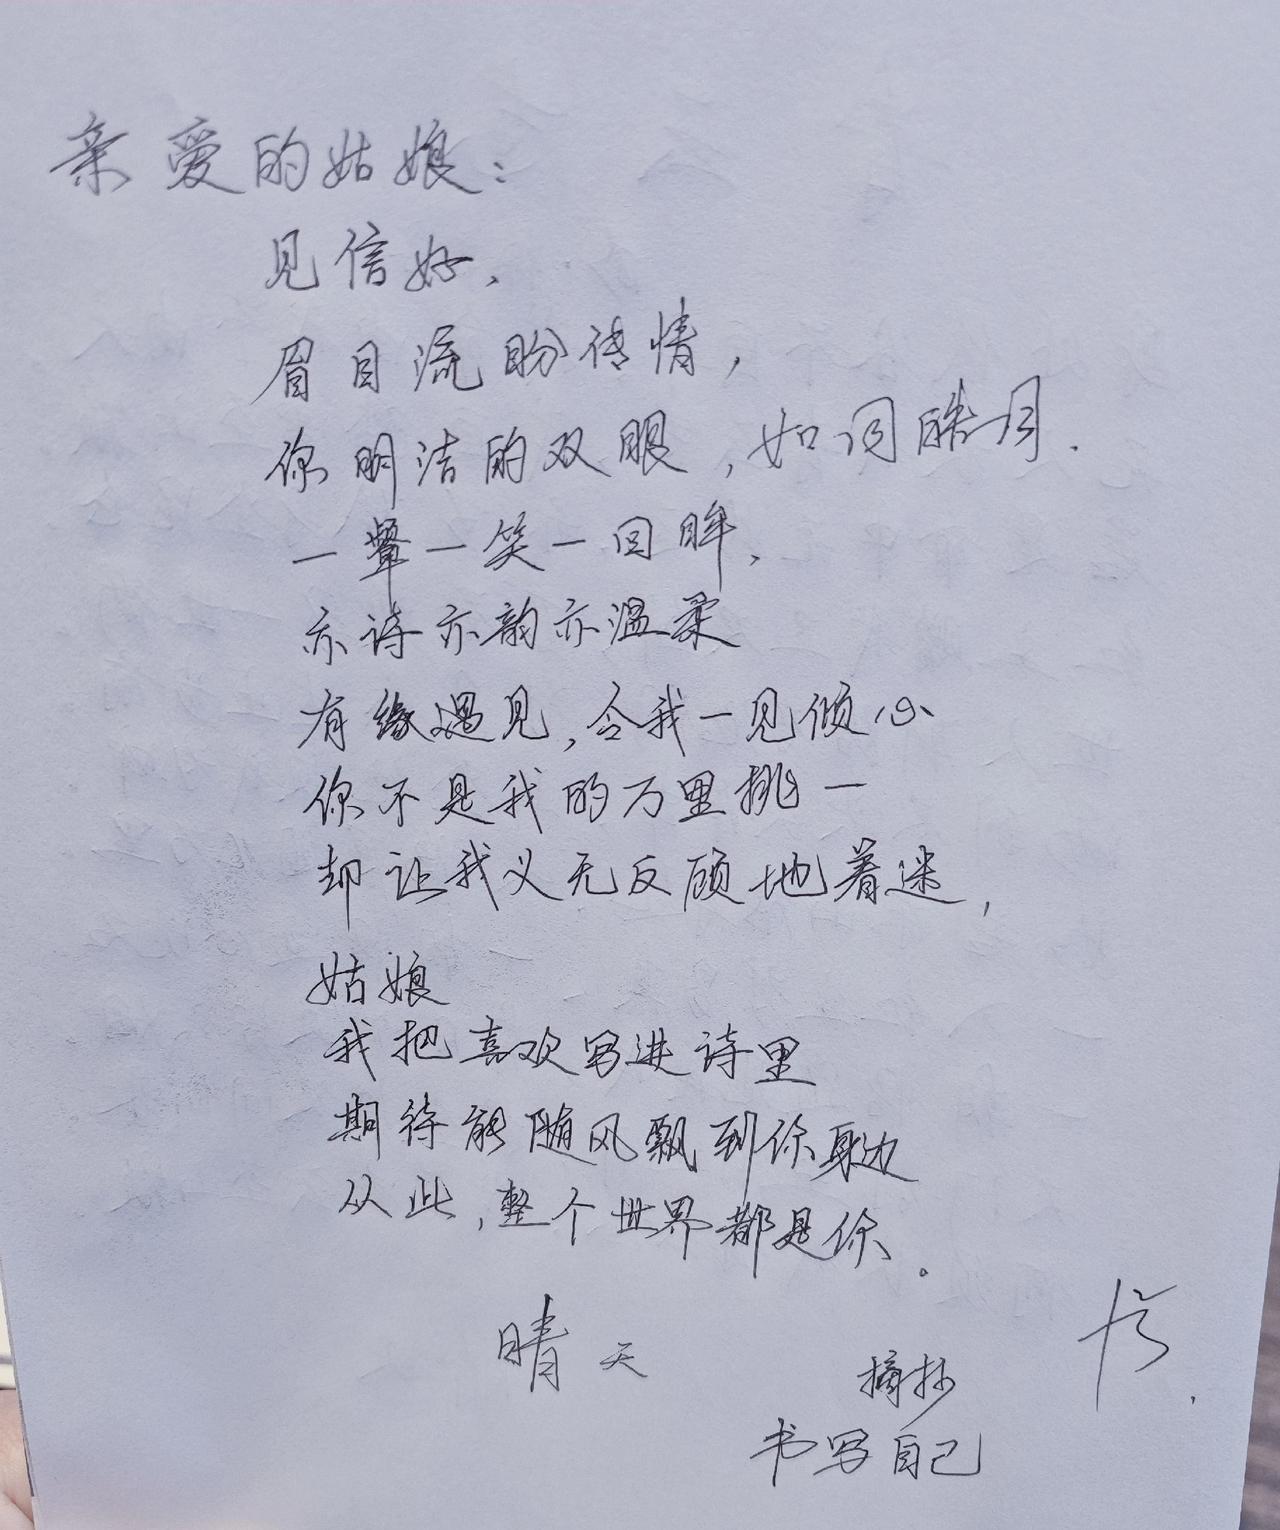 亲爱的姑娘：
见信好、
眉目流盼传情，
你明洁的双眼，如同皓月.
一颦一笑一回眸、
亦诗亦韵亦温柔
有缘遇见，令我一见倾心
你不是我的万里挑一
却让我义无反顾地着迷，
姑娘
我把喜欢写进诗里
期待能随风飘到你身边
从此，整个世界都是你。
晴天
摘抄
书写自己